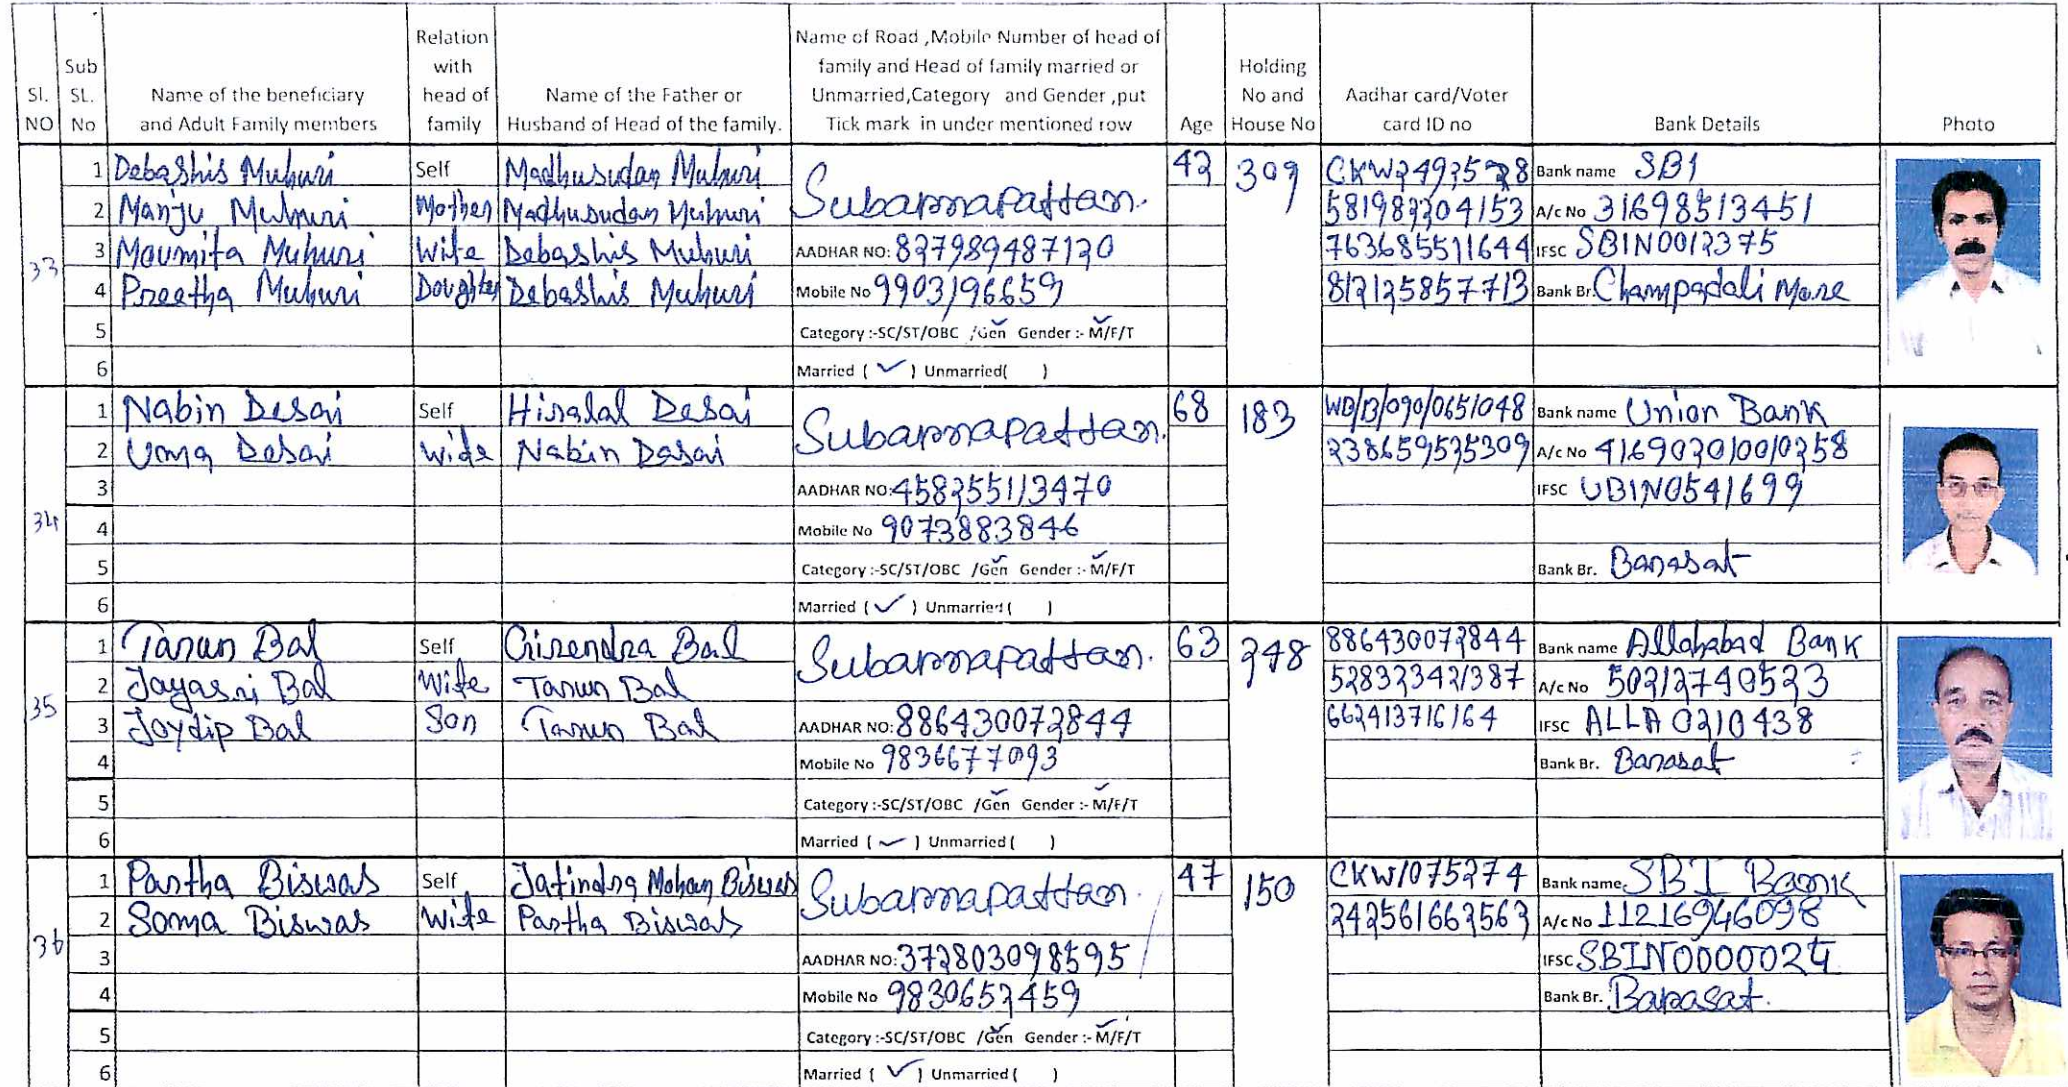 Sl. NO
Sub SL. No
Name of the beneficiary and Adult Family members
Relation with head of family
Name of the Father or Husband of Head of the family.
Name of Road ,Mobile Number of head of family and Head of family married or Unmarried,Category and Gender ,put Tick mark in under mentioned row
Age
Holding No and House No
Aadhar card/Voter card ID no
Bank Details
Photo
33
1 Debashis Muhuri Self Madhusudan Muhuri Subarnapattan. 42 309 Bank name SBI
2 Manju Muhuri Mother Madhusudan Muhuri 581982204153 A/c No 31698513451
3 Moumita Muhuri Wife Debashis Muhuri AADHAR NO: 827989487120 763685511644 IFSC SBIN0012375
4 Preetha Muhuri Doughter Debashis Muhuri Mobile No 9903196659 812125857713 Bank Br. Champadali More
5 Category :-SC/ST/OBC /Gen Gender :- M/F/T
6 Married ( ✓ ) Unmarried( )
34
1 Nabin Desai Self Hiralal Desai Subarnapattan. 68 183 WB/13/090/0651048 Bank name Union Bank
2 Uma Desai Wife Nabin Desai 238659525309 A/c No 416902010010258
3 AADHAR NO: 458255113470 IFSC UBIN0541699
4 Mobile No 9073883846
5 Category :-SC/ST/OBC /Gen Gender :- M/F/T Bank Br. Barasat
6 Married ( ✓ ) Unmarried ( )
35
1 Tarun Bal Self Girendra Bal Subarnapattan. 63 248 886430072844 Bank name Allahabad Bank
2 Jayasri Bal Wife Tarun Bal 528323421387 A/c No 50212740523
3 Joydip Bal Son Tarun Bal AADHAR NO: 886430072844 662413716164 IFSC ALLA0210438
4 Mobile No 9836677093 Bank Br. Barasat
5 Category :-SC/ST/OBC /Gen Gender :- M/F/T
6 Married ( ✓ ) Unmarried ( )
36
1 Partha Biswas Self Jatindra Mohan Biswas Subarnapattan. 47 150 CKW1075274 Bank name SBI Bank
2 Soma Biswas Wife Partha Biswas 242561662563 A/c No 11216946098
3 AADHAR NO: 372803098595 IFSC SBIN0000024
4 Mobile No 9830652459 Bank Br. Barasat.
5 Category :-SC/ST/OBC /Gen Gender :- M/F/T
6 Married ( ✓ ) Unmarried ( )